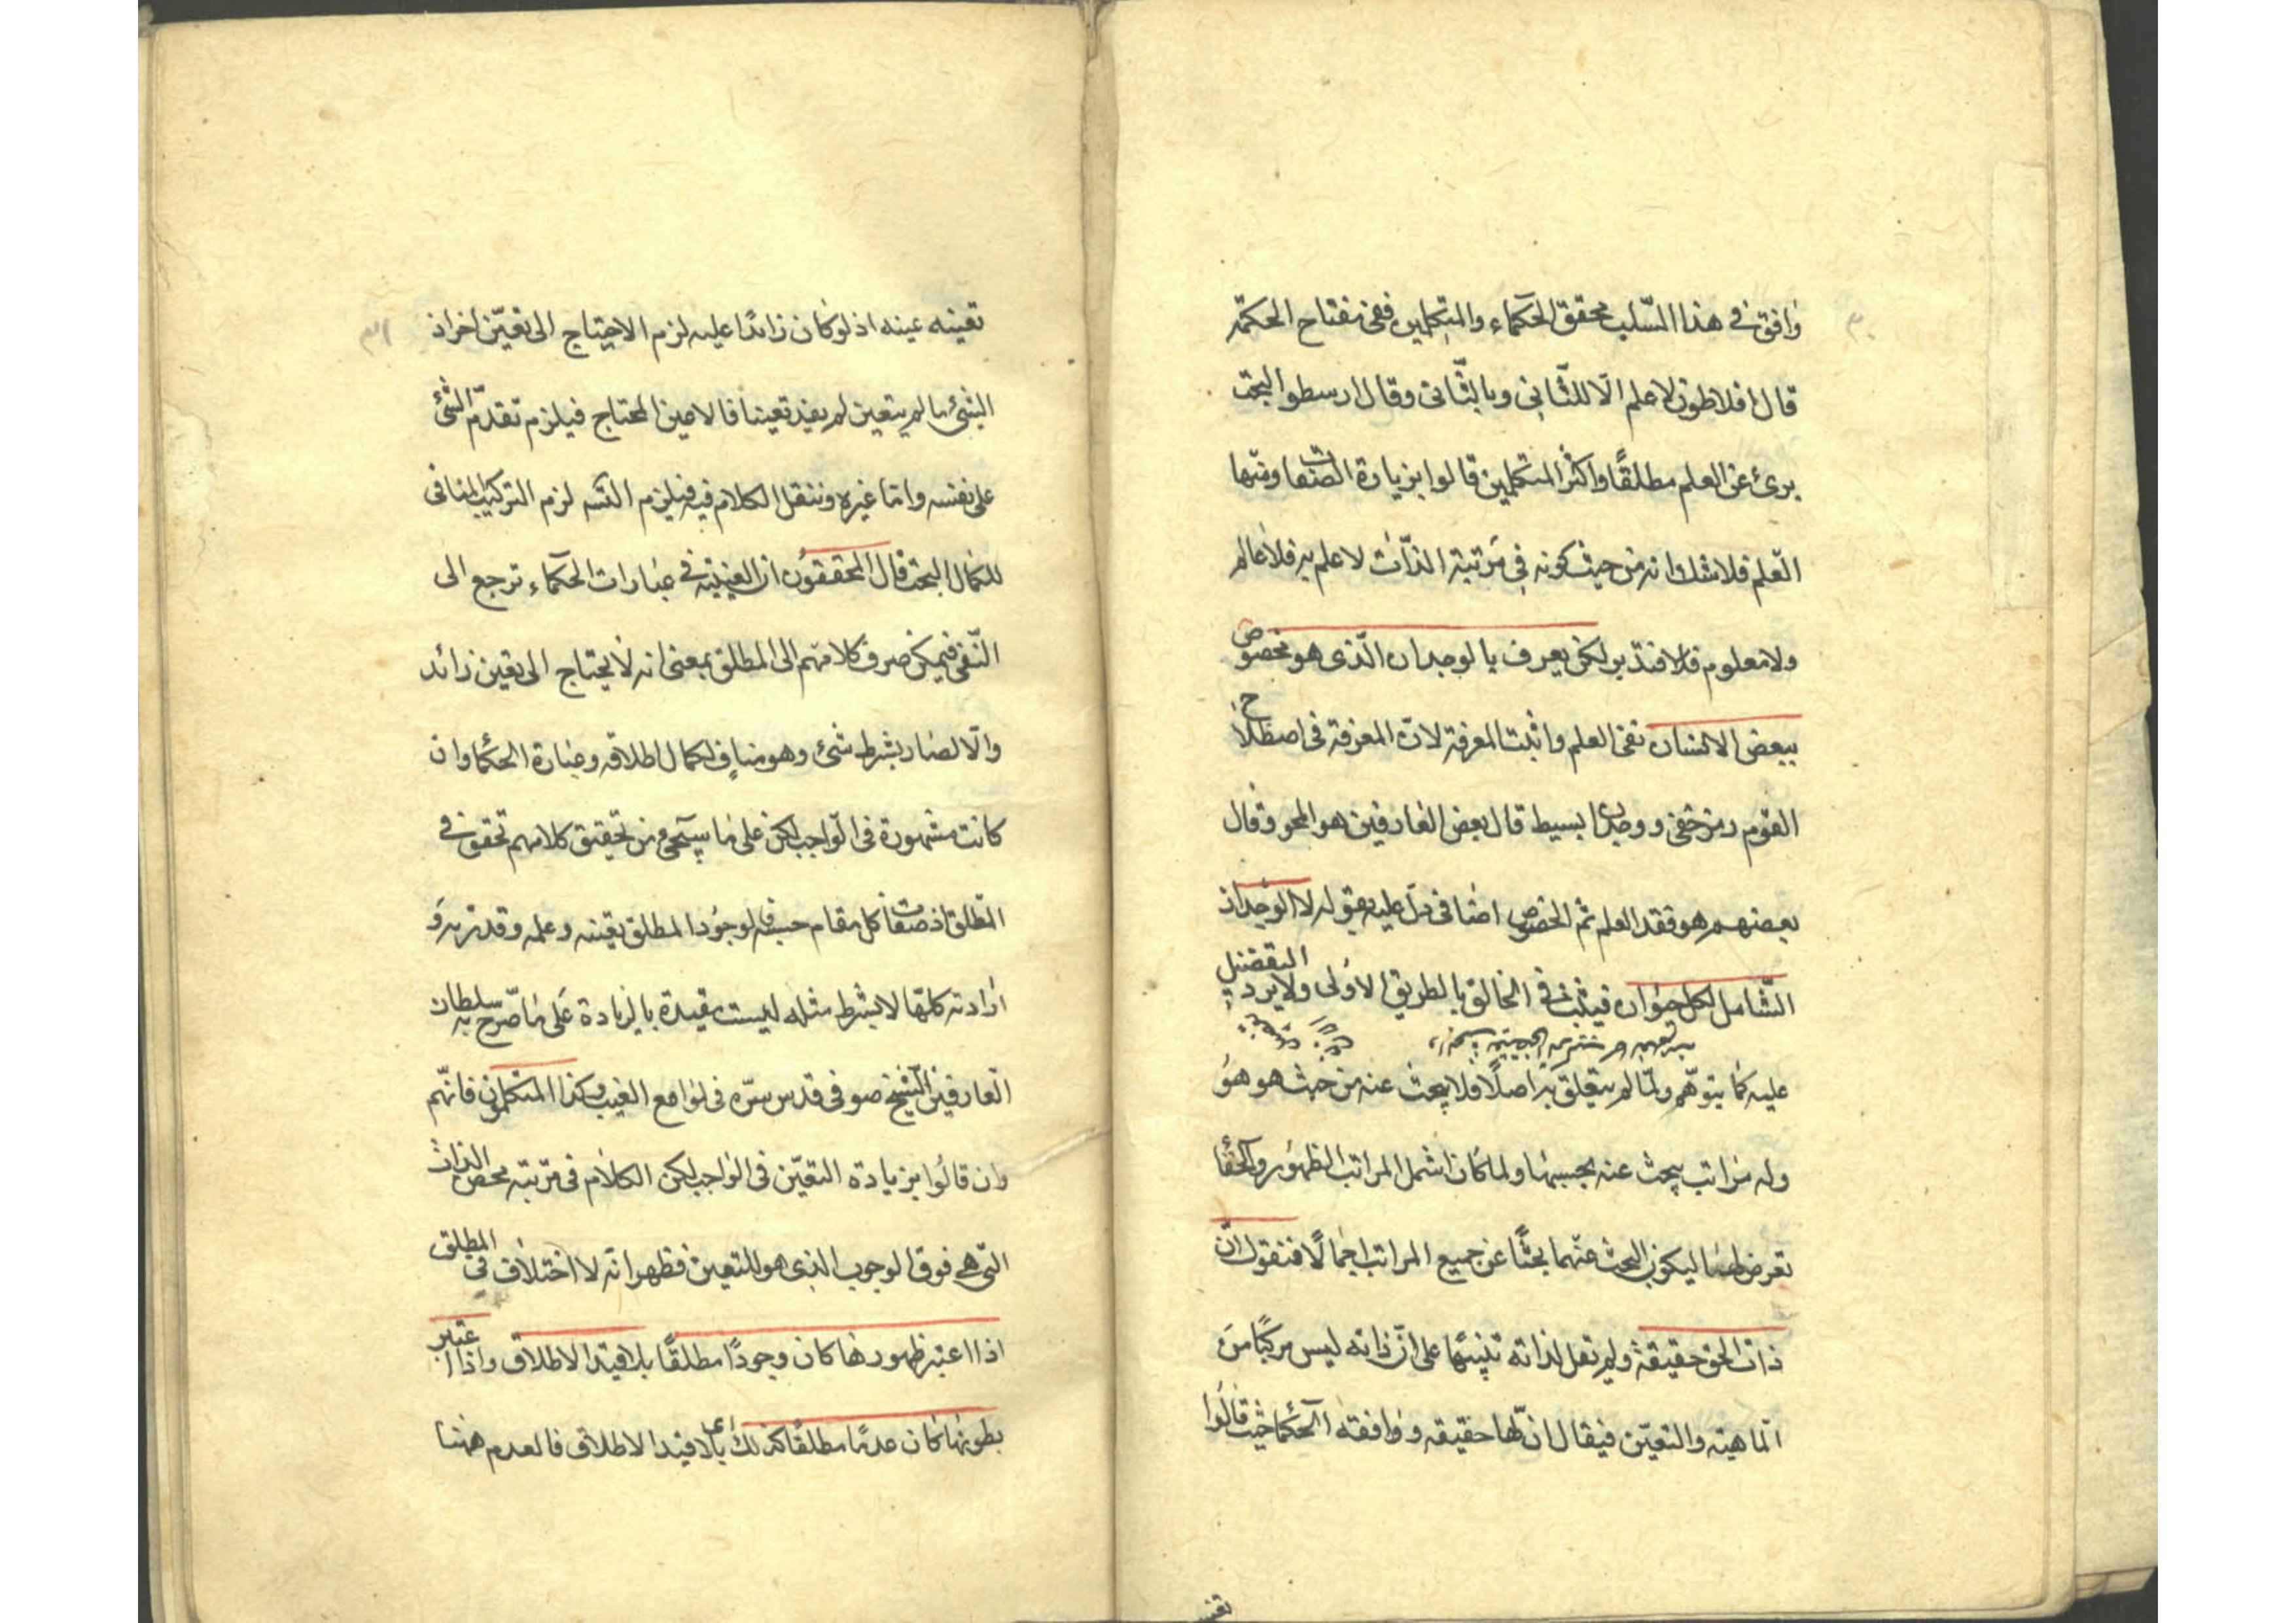 ٣٠
وافق في هذا السّلب محقق الحكماء والمتكلمين ففى مفتاح الحكمة
قال افلاطون لا علم الّا للثّانى وبالثّانى وقال ارسطو البحت
برئ عن العلم مطلقًا واكثر المتكلمين قالوا بزيادة الصفات ومنها
العلم فلا شك انه من حيث كونه في مرتبة الذّات لا علم به فلا عالم
ولا معلوم فلا فتدبر لكن يعرف بالوجدان الّذى هو مخصوص
ببعض الانسان نفى العلم واثبت المعرفة لانّ المعرفة فى اصطلاح
القوم رمز خفى ووجدان بسيط قال بعض العارفين هو المحو وقال
بعضهم هو فقد العلم ثم الخصوص اضافى دلّ عليه بقوله لا الوجدان
الشّامل لكل حيوان فيثبت فى الخالق بالطريق الاولى ولا يرد التفضيل
عليه كما يتوهّم ولمّا لم يتعلق به اصلًا فلا يبحث عنه من حيث هو هو
وله مراتب يبحث عنه بحسبها ولما كان اشمل المراتب الظهور والخفا
تعرض لهما ليكون البحث عنهما بحثًا عن جميع المراتب اجمالًا فنقول انّ
ذات الحق حقيقة ولم تقل لذاته تنبيهًا على انّ ذاته ليس مركبًا من
الماهية والتعيّن فيقال انّ لها حقيقة ووافقه الحكما حيث قالوا
تعينه
٣١
تعينه عينه اذ لو كان زائدًا عليه لزم الاحتياج الى تعيّن اخر اذ
الشئ ما لم يتعين لم يفد تعينا فالا مين المحتاج فيلزم تقدّم الشئ
على نفسه واما غيره وننقل الكلام فيه فيلزم التسه لزم التركيب المنافى
للكمال البحت قال المحققون ان العينية فى عبارات الحكماء ترجع الى
النّفى فيمكن صرف كلامهم الى المطلق بمعنى انه لا يحتاج الى تعين زائد
والّا لصار بشرط شئ وهو مناف لكمال اطلاقه وعبارة الحكما وان
كانت مشهورة فى الواجب لكن على ما سيجئ من تحقيق كلامهم تحقق فى
المطلق اذ صفات كل مقام حسبه فالوجود المطلق تعينه وعلمه وقدرته و
ارادته كلها لا بشرط مثله ليست مقيدة بالزيادة على ما صرّح به سلطان
العارفين الشيخ صوفى قدس سرّه فى لوامع الغيب وكذا المتكلمون فانّهم
وان قالوا بزيادة التعيّن فى الواجب لكن الكلام فى مرتبة محض الذات
التى هى فوق الوجوب الذى هو للتعين فظهر انّه لا اختلاف فى المطلق
اذا اعتبر ظهورها كان وجودًا مطلقًا بلا قيد الاطلاق واذا اعتبر
بطونها كان عدمًا مطلقًا كذلك اى بلا قيد الاطلاق فالعدم ههنا